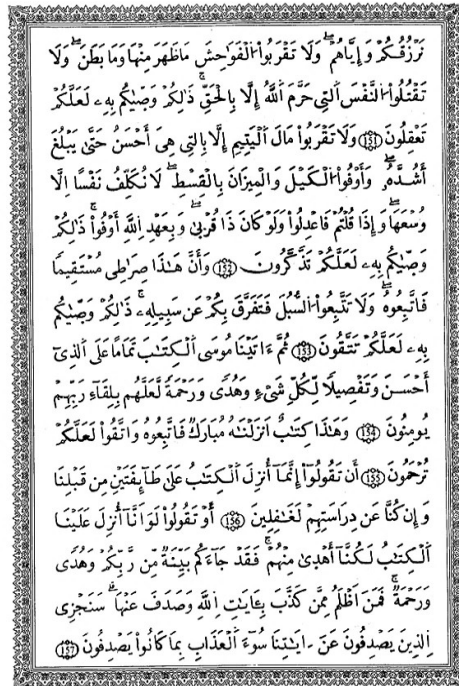 نَرْزُقُكُمْ وَإِيَّاهُمْ وَلَا تَقْرَبُوا الْفَوَاحِشَ مَا ظَهَرَ مِنْهَا وَمَا بَطَنَ وَلَا
تَقْتُلُوا النَّفْسَ الَّتِي حَرَّمَ اللَّهُ إِلَّا بِالْحَقِّ ذَٰلِكُمْ وَصَّيٰكُم بِهِۦ لَعَلَّكُمْ
تَعْقِلُونَ (151) وَلَا تَقْرَبُوا مَالَ الْيَتِيمِ إِلَّا بِالتِي هِيَ أَحْسَنُ حَتَّىٰ يَبْلُغَ
أَشُدَّهُ وَأَوْفُوا الْكَيْلَ وَالْمِيزَانَ بِالْقِسْطِ لَا نُكَلِّفُ نَفْسًا إِلَّا
وُسْعَهَا وَإِذَا قُلْتُمْ فَاعْدِلُوا وَلَوْ كَانَ ذَا قُرْبَىٰ وَبِعَهْدِ اللَّهِ أَوْفُوا ذَٰلِكُمْ
وَصَّيٰكُم بِهِۦ لَعَلَّكُمْ تَذَّكَّرُونَ (152) وَأَنَّ هَٰذَا صِرَاطِي مُسْتَقِيمًا
فَاتَّبِعُوهُ وَلَا تَتَّبِعُوا السُّبُلَ فَتَفَرَّقَ بِكُمْ عَن سَبِيلِهِۦ ذَٰلِكُمْ وَصَّيٰكُم
بِهِۦ لَعَلَّكُمْ تَتَّقُونَ (153) ثُمَّ ءَاتَيْنَا مُوسَى الْكِتَٰبَ تَمَامًا عَلَى الَّذِي
أَحْسَنَ وَتَفْصِيلًا لِّكُلِّ شَيْءٍ وَهُدًى وَرَحْمَةً لَّعَلَّهُم بِلِقَاءِ رَبِّهِمْ
يُومِنُونَ (154) وَهَٰذَا كِتَٰبٌ أَنزَلْنَٰهُ مُبَارَكٌ فَاتَّبِعُوهُ وَاتَّقُوا لَعَلَّكُمْ
تُرْحَمُونَ (155) أَن تَقُولُوا إِنَّمَا أُنزِلَ الْكِتَٰبُ عَلَىٰ طَائِفَتَيْنِ مِن قَبْلِنَا
وَإِن كُنَّا عَن دِرَاسَتِهِمْ لَغَٰفِلِينَ (156) أَوْ تَقُولُوا لَوْ أَنَّا أُنزِلَ عَلَيْنَا
الْكِتَٰبُ لَكُنَّا أَهْدَىٰ مِنْهُمْ فَقَدْ جَاءَكُم بَيِّنَةٌ مِّن رَّبِّكُمْ وَهُدًى
وَرَحْمَةٌ فَمَنْ أَظْلَمُ مِمَّن كَذَّبَ بِـَٔايَٰتِ اللَّهِ وَصَدَفَ عَنْهَا سَنَجْزِي
الَّذِينَ يَصْدِفُونَ عَنْ ءَايَٰتِنَا سُوءَ الْعَذَابِ بِمَا كَانُوا يَصْدِفُونَ (157)